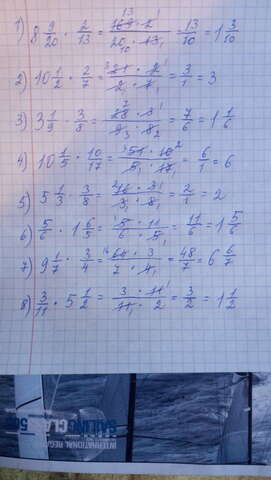 1) 8 9/20 · 2/13 = 169 · 2 / 20 · 13 = 13/10 = 1 3/10
2) 10 1/2 · 2/7 = 21 · 2 / 2 · 7 = 3/1 = 3
3) 3 1/9 · 3/8 = 28 · 3 / 9 · 8 = 7/6 = 1 1/6
4) 10 1/5 · 10/17 = 51 · 10 / 5 · 17 = 6/1 = 6
5) 5 1/3 · 3/8 = 16 · 3 / 3 · 8 = 2/1 = 2
6) 5/6 · 1 6/5 = 5 · 11 / 6 · 5 = 11/6 = 1 5/6
7) 9 1/7 · 3/4 = 64 · 3 / 7 · 4 = 48/7 = 6 6/7
8) 3/11 · 5 1/2 = 3 · 11 / 11 · 2 = 3/2 = 1 1/2
SAILING CLASS 50
INTERNATIONAL REGA